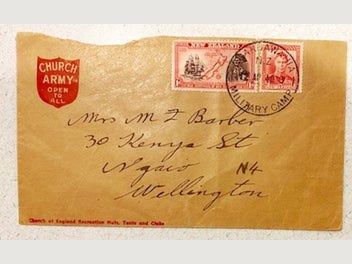 CHURCH
ARMY
OPEN
TO
ALL
NEW ZEALAND
MILITARY CAMP
Mrs M F Barber
30 Kenya St
Ngaio N4
Wellington
Church of England Recreation Huts, Tents and Clubs